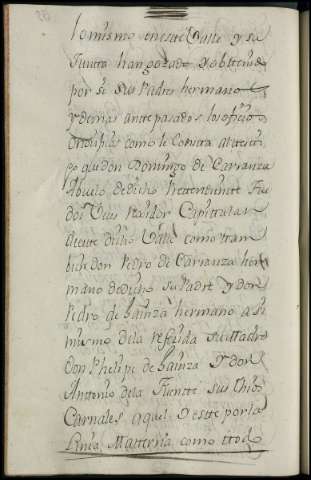 lo mismo en este Valle y su
Junta han gozado y obtenido
por si sus Padres hermanos
y demas antepasados los oficios
como le consta al testi
go que don Domingo de Carranza
Abuelo de dicho Pretendiente fue
dos veces Rexidor Capitular
de este dicho Valle como tam
bien don Pedro de Carranza her
mano de dicho su Padre y don
Pedro de Sainza hermano asi
mismo de la referida su Madre
Don Phelipe de Sainza y don
Antonio de la Fuente sus thios
Carnales aquel y este por la
Linea Materna como todo